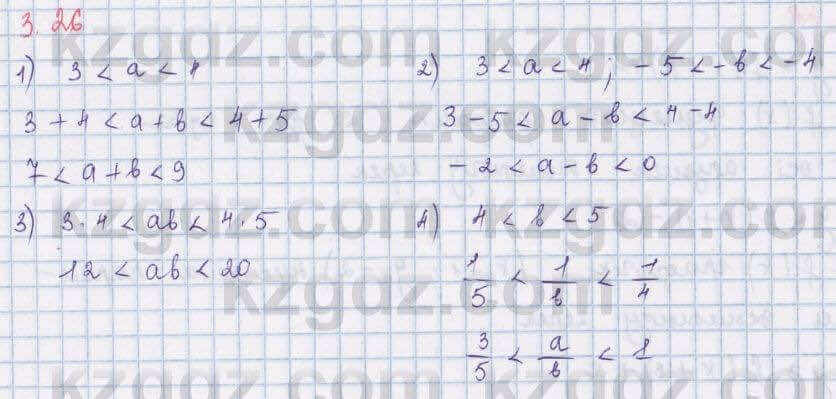 3.26
1) 3 < a < 4
2) 3 < a < 4; -5 < -b < -4
3 + 4 < a + b < 4 + 5
3 - 5 < a - b < 4 - 4
7 < a + b < 9
-2 < a - b < 0
3) 3·4 < ab < 4·5
12 < ab < 20
4) 4 < b < 5
1/5 < 1/b < 1/4
3/5 < a/b < 1
kzgdz.com
kzgdz.com
kzgdz.com
kzgdz.com
kzgdz.com